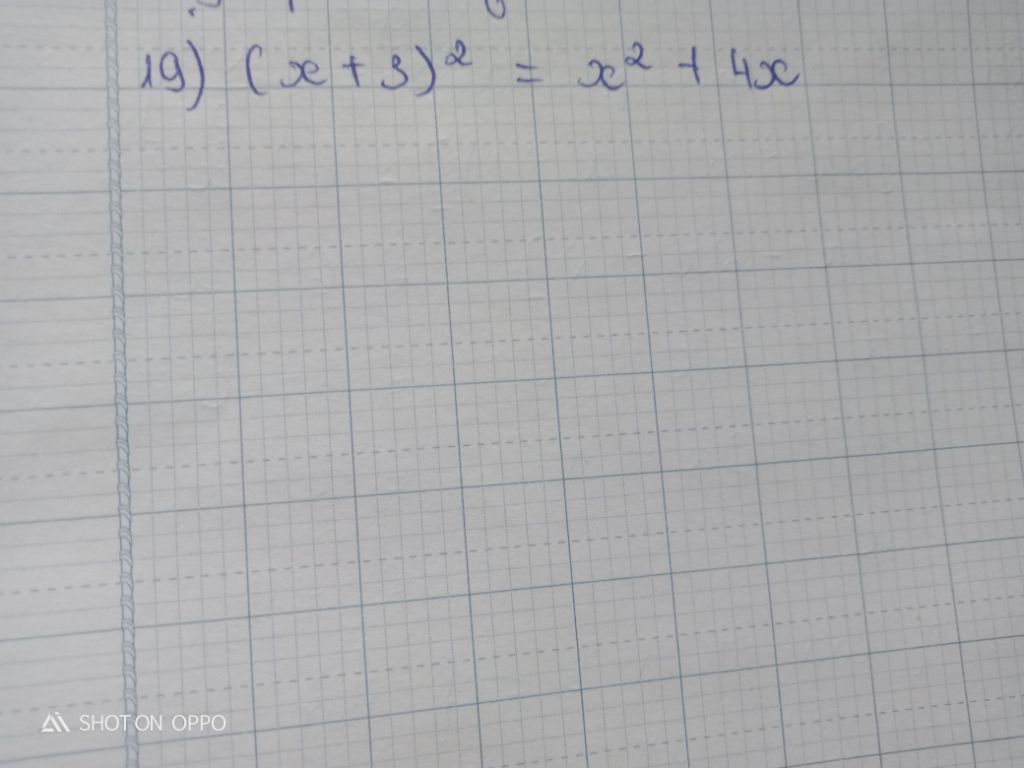 19) (x + 3)² = x² + 4x
SHOT ON OPPO